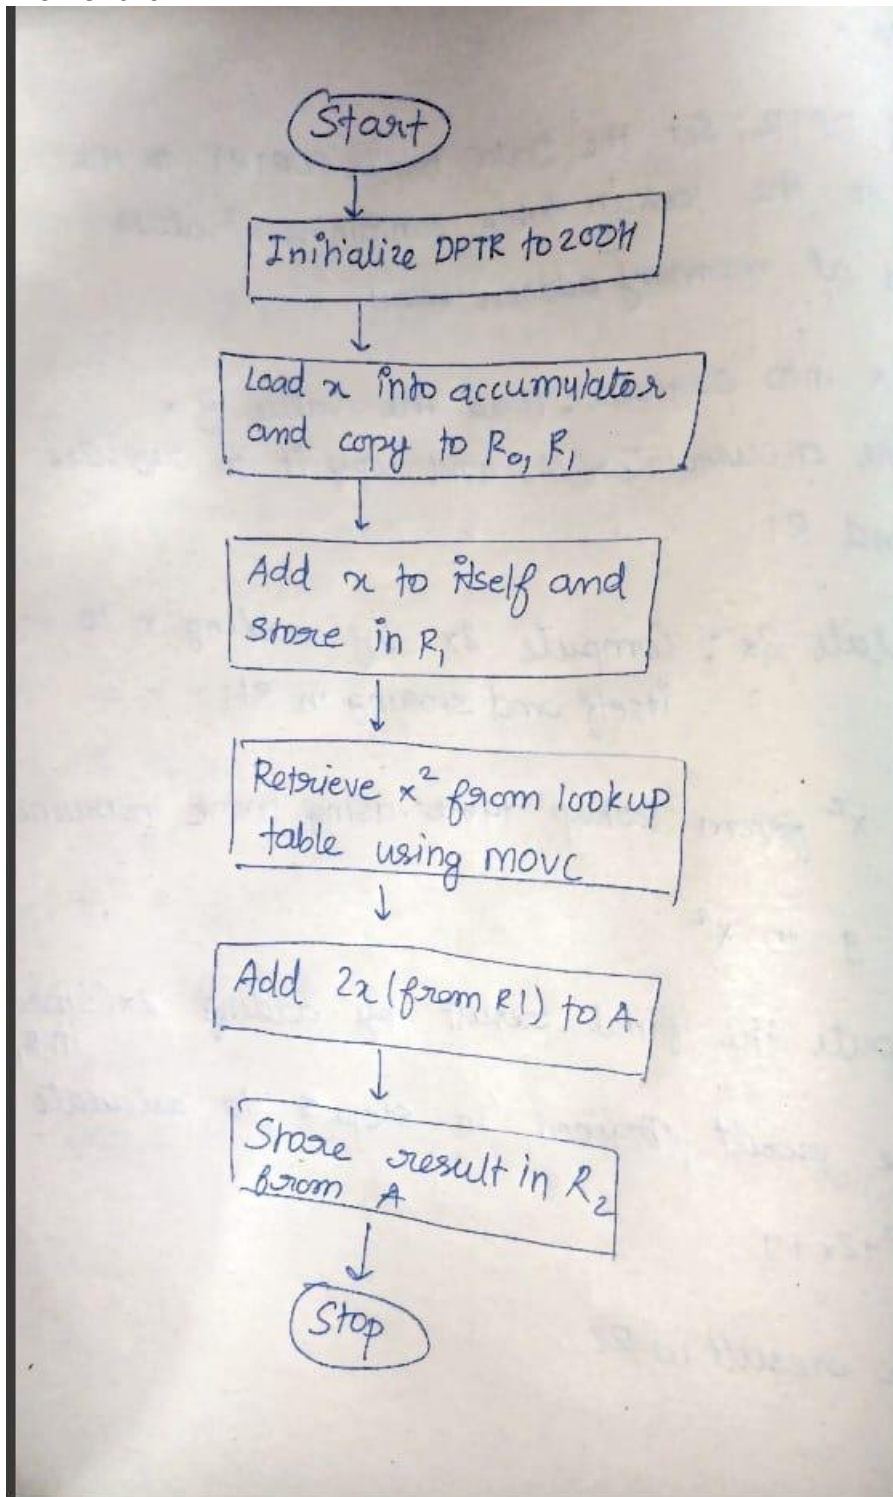 Start
Initialize DPTR to 200H
Load x into accumulator
and copy to R0, R1
Add x to itself and
Store in R1
Retrieve x² from lookup
table using MOVC
Add 2x (from R1) to A
Store result in R2
from A
Stop